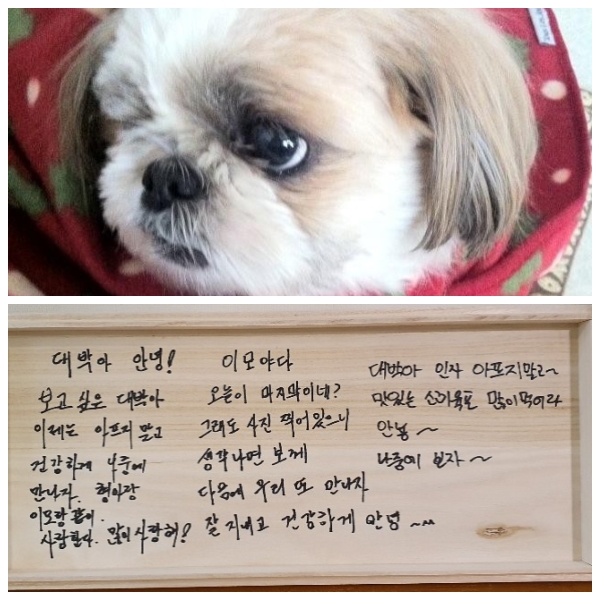 대박아 안녕!
보고 싶은 대박아
이제는 아프지 말고
건강하게 나중에
만나자. 형아랑
이모랑 같이.
사랑한다. 많이 사랑혀!
이모야다
오늘이 마지막이네?
그래도 사진 찍어있으니
생각나면 보게
다음에 우리 또 만나자
잘 지내고 건강하게 안녕~
대박아 인자 아프지말라~
맛있는 소고기 많이먹어라
안뇽~
나중에 보자~